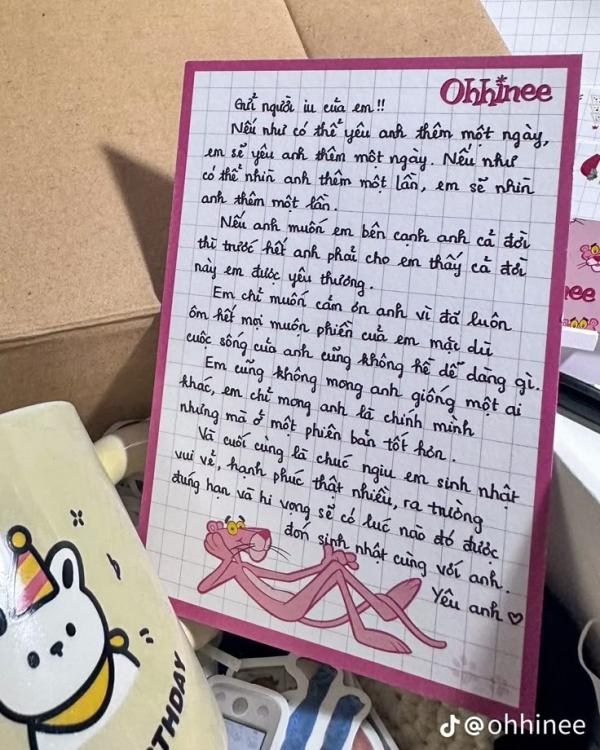 Ohhinee
Gửi người iu của em!!
Nếu như có thể yêu anh thêm một ngày,
em sẽ yêu anh thêm một ngày. Nếu như
có thể nhìn anh thêm một lần, em sẽ nhìn
anh thêm một lần.
Nếu anh muốn em bên cạnh anh cả đời
thì trước hết anh phải cho em thấy cả đời
này em được yêu thương.
Em chỉ muốn cảm ơn anh vì đã luôn
ôm hết mọi muộn phiền của em mặc dù
cuộc sống của anh cũng không hề dễ dàng gì.
Em cũng không mong anh giống một ai
khác, em chỉ mong anh là chính mình
nhưng mà ở một phiên bản tốt hơn.
Và cuối cùng là chúc ngiu em sinh nhật
vui vẻ, hạnh phúc thật nhiều, ra trường
đúng hạn và hi vọng sẽ có lúc nào đó được
đón sinh nhật cùng với anh.
Yêu anh ♡
nee
THDAY
@ohhinee